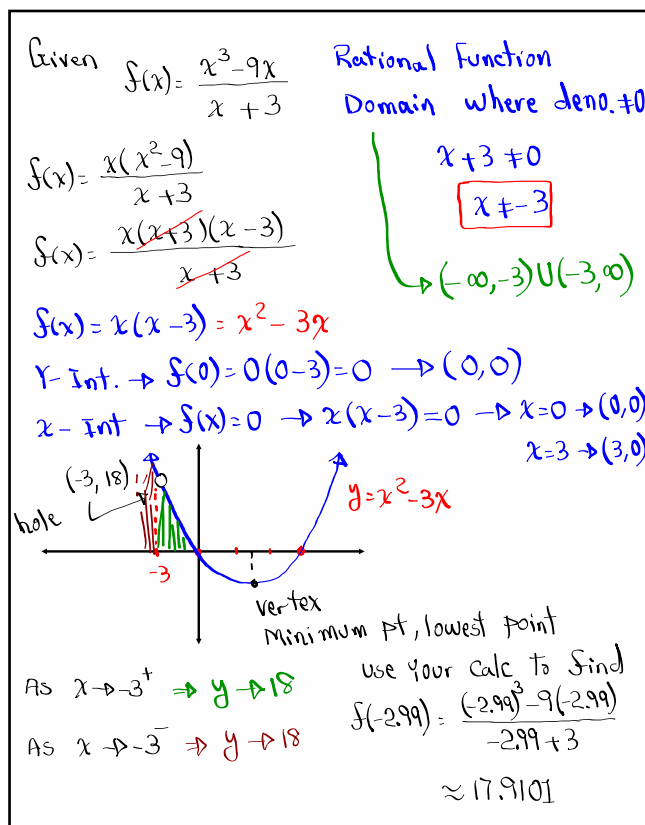 Given f(x) = \frac{x^3 - 9x}{x + 3}
Rational Function
Domain where deno. ≠ 0
x + 3 ≠ 0
x ≠ -3
→ (-∞, -3) ∪ (-3, ∞)
f(x) = \frac{x(x^2 - 9)}{x + 3}
f(x) = \frac{x(x+3)(x-3)}{x+3}
f(x) = x(x-3) = x^2 - 3x
Y- Int. → f(0) = 0(0-3) = 0 → (0,0)
x- Int → f(x) = 0 → x(x-3) = 0 → x=0 → (0,0)
x=3 → (3,0)
(-3, 18)
hole
y = x^2 - 3x
-3
vertex
Minimum pt, lowest point
As x → -3^+ ⇒ y → 18
As x → -3^- ⇒ y → 18
use your calc to find
f(-2.99) = \frac{(-2.99)^3 - 9(-2.99)}{-2.99 + 3}
≈ 17.9101